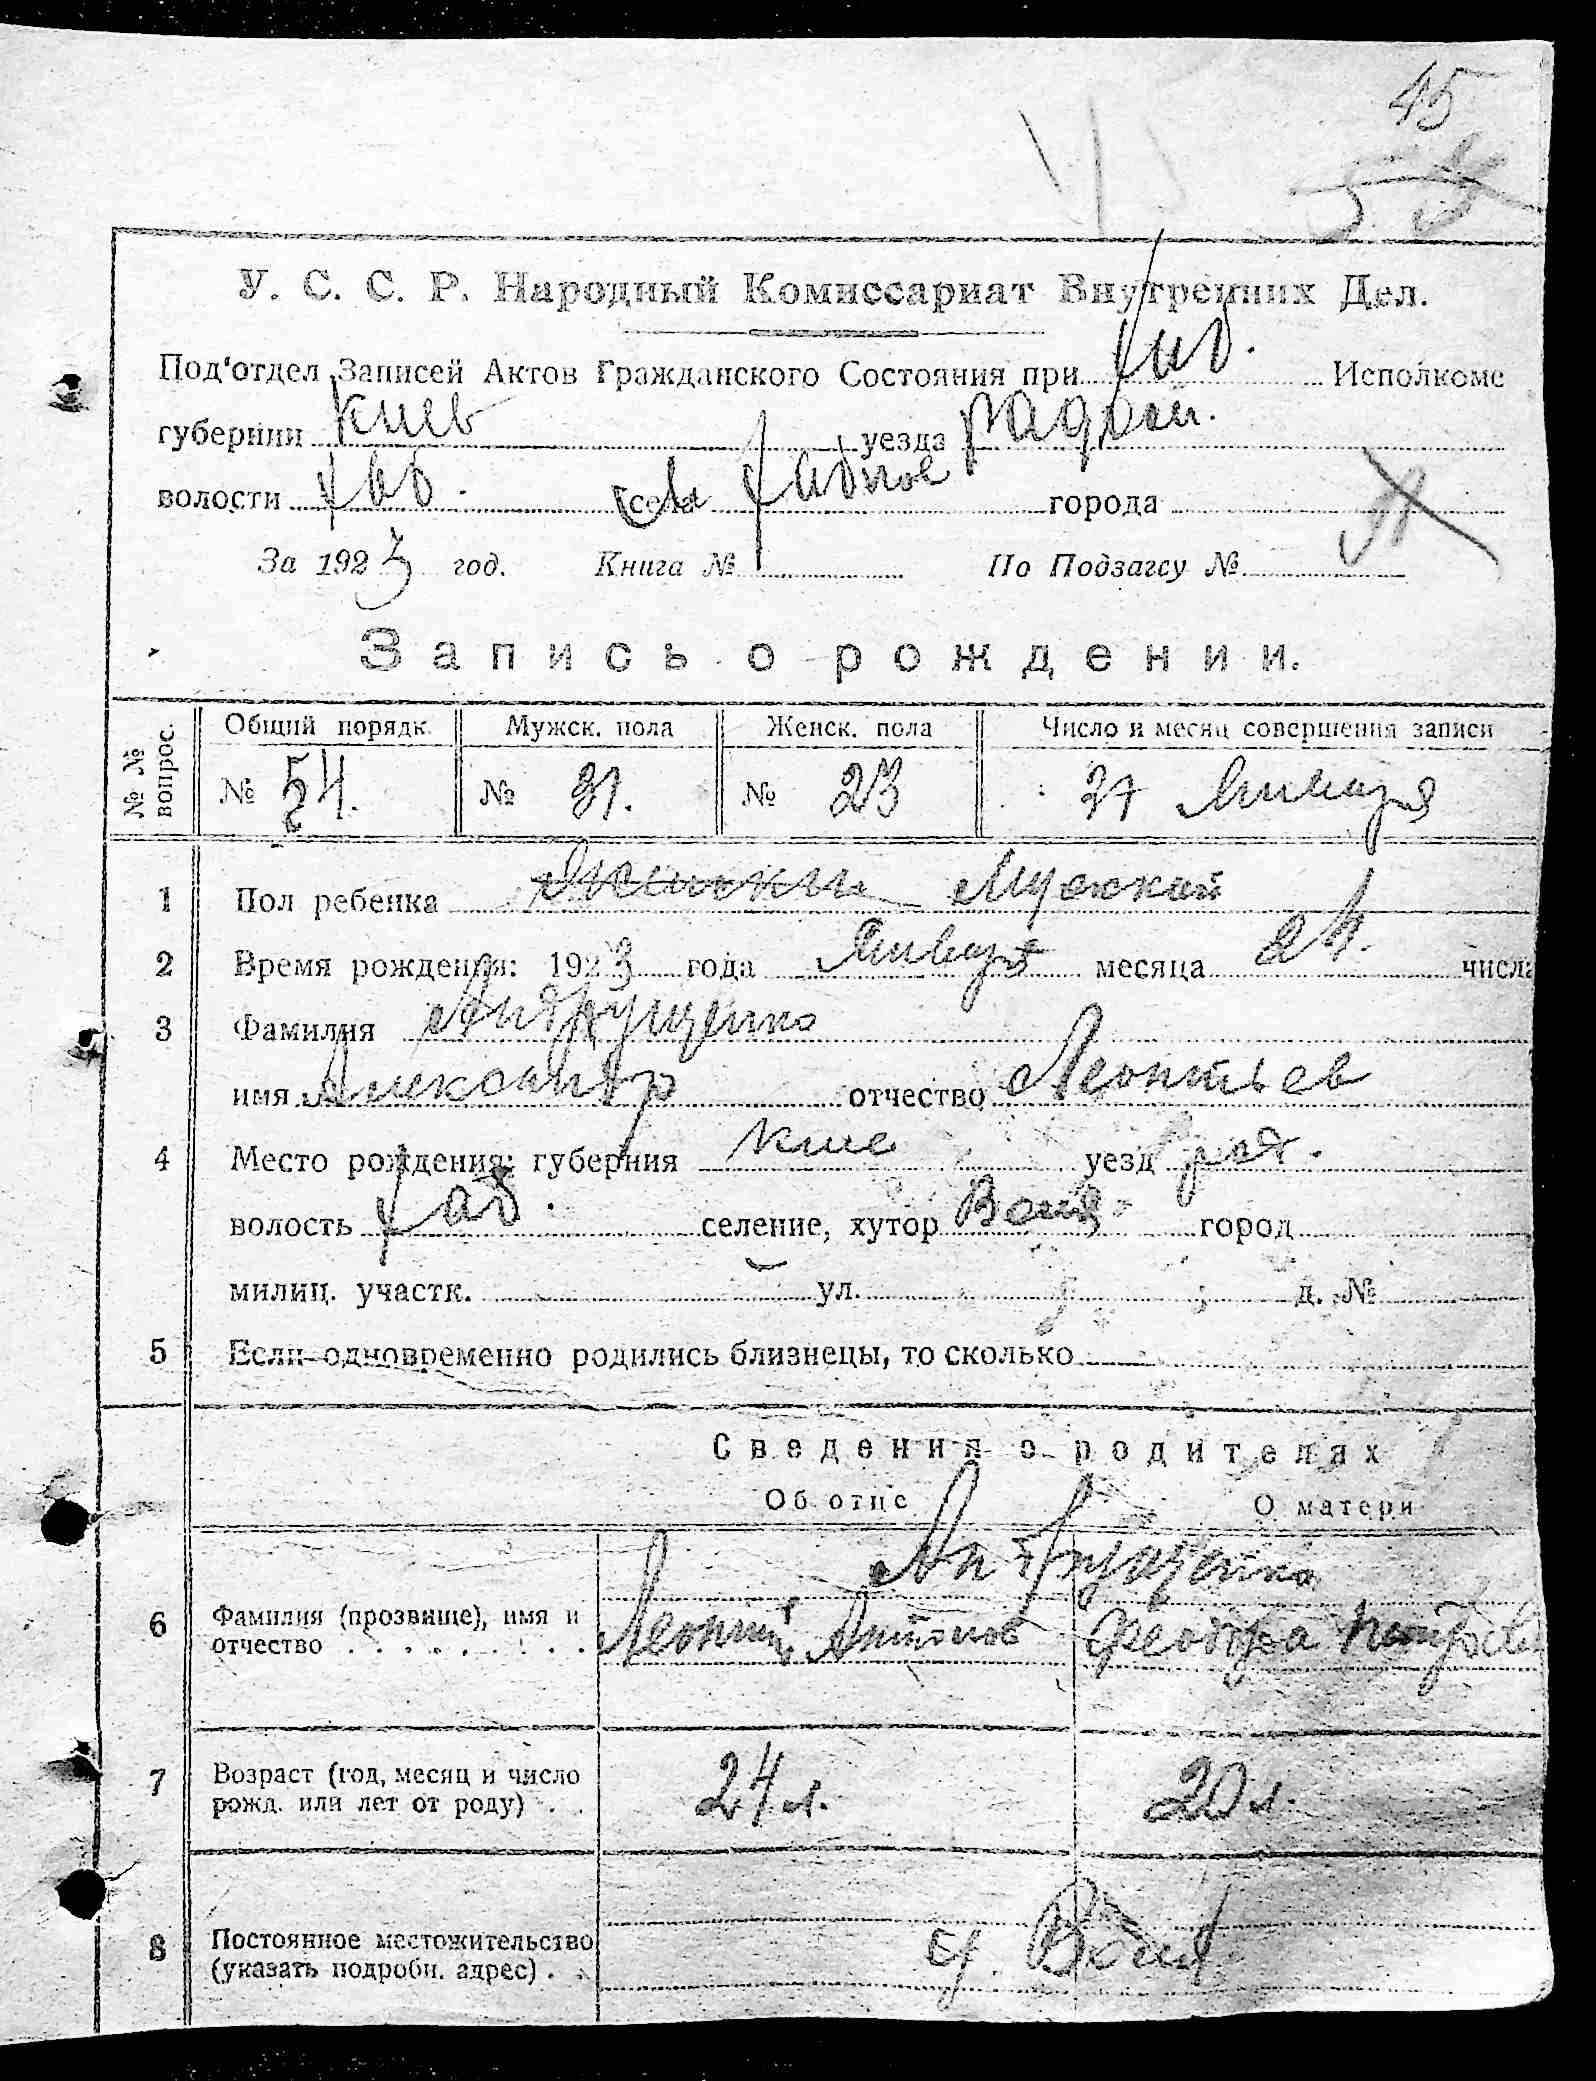 45
У. С. С. Р. Народный Комиссариат Внутренних Дел.
Под‘отдел Записей Актов Гражданского Состояния при Хаб. Исполкоме
губернии Киев уезда Радом.
волости Хаб. села Хабное города
За 1923 год. Книга № По Подзагсу №
Запись о рождении.
№ № вопрос.
Общий порядк. Мужск. пола Женск. пола Число и месяц совершения записи
№ 54. № 31. № 23 Января
1 Пол ребенка Мужской
2 Время рождения: 1923 года Января месяца 24. числа
3 Фамилия Андрущенко
имя Александр отчество Леонтьев
4 Место рождения: губерния Кие уезд рад.
волость Хаб. селение, хутор город
милиц. участк. ул. д. №
5 Если одновременно родились близнецы, то сколько
Сведения о родителях
Об отце О матери
Андрущенко
6 Фамилия (прозвище), имя и
отчество Леонтий Антонов Феодора Петров
7 Возраст (год, месяц и число
рожд. или лет от роду) 24 л. 20 л.
8 Постоянное местожительство
(указать подробн. адрес) с.